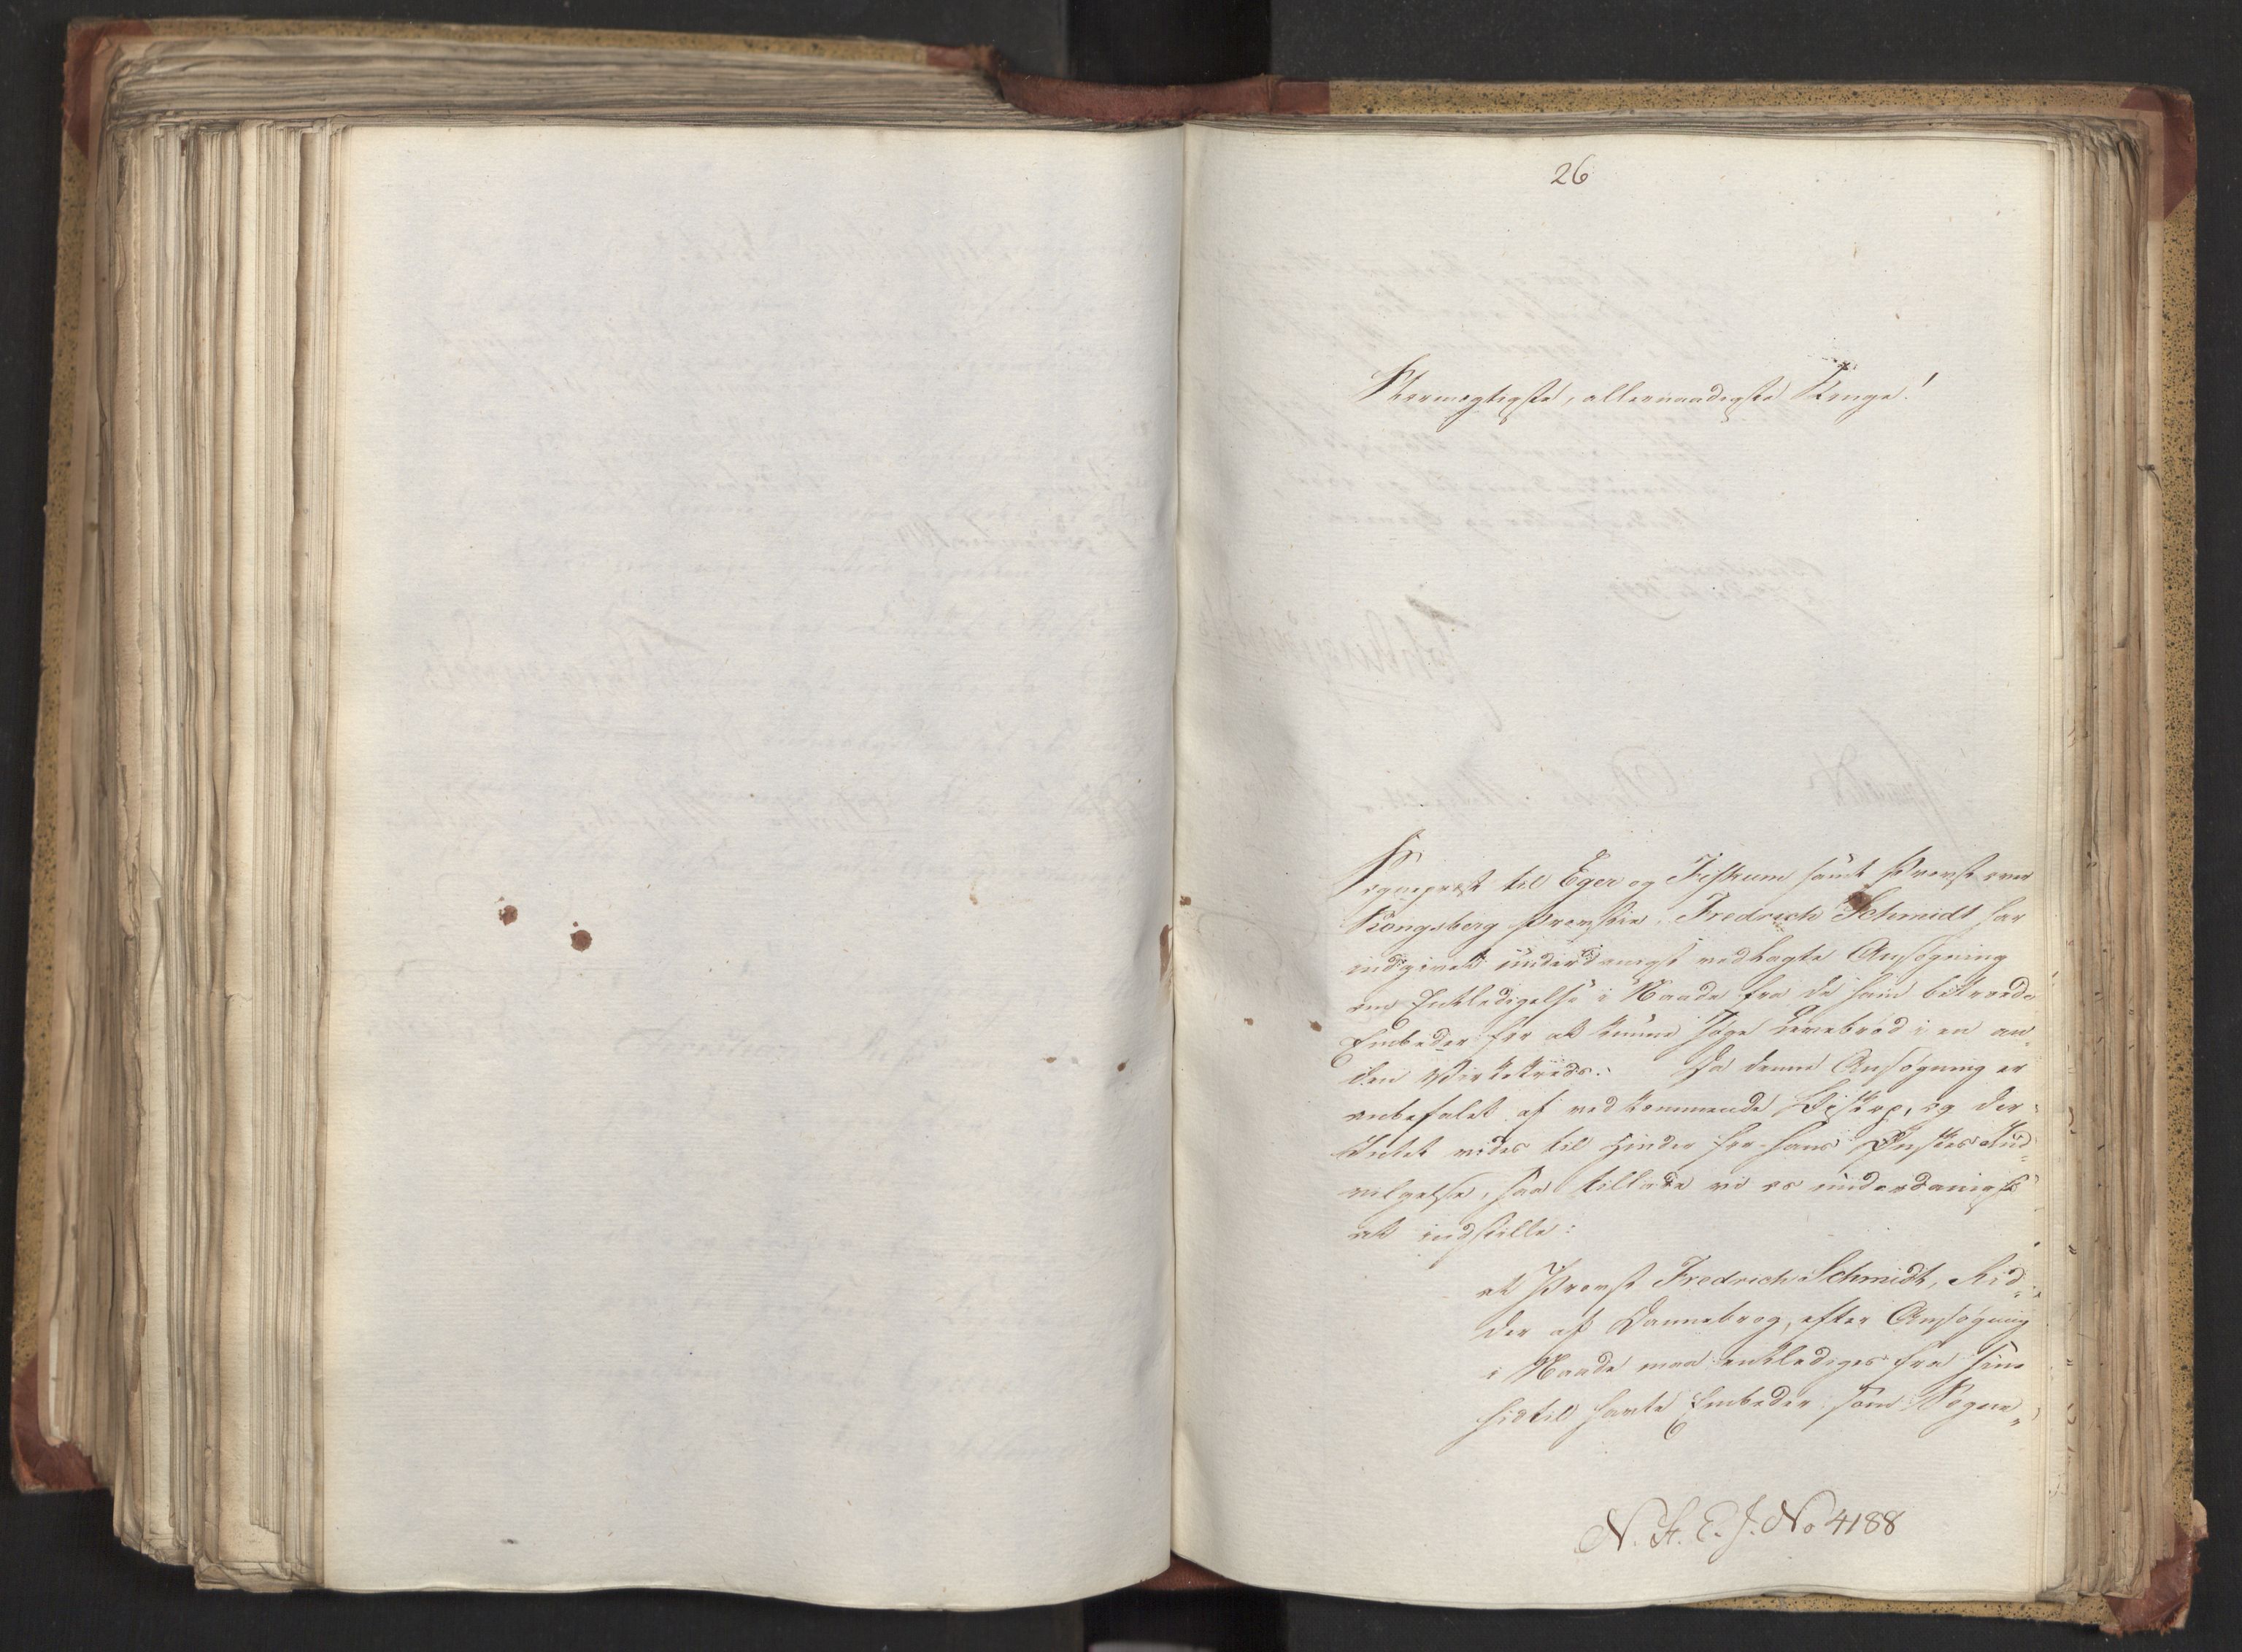 26
Stormægtigste, allernaadigste Konge!
Sognepræst til Eger og Fiskum samt Provst over
Kongsberg Provstie, Fredrich Schmidt har
indgivet underdanigst vedlagte Ansøgning
om Entledigelse i Naade fra de ham betroede
Embeder for at kunne søge Levebrød i en an-
den Virkekreds. Da denne Ansøgning er
anbefalet af vedkommende Biskop, og der
Intet vides til Hinder for hans Ønskes Ind-
vilgelse, saa tillade vi os underdanigst
at indstille:
at Provst Fredrich Schmidt, Rid-
der af Dannebrog, efter Ansøgning
i Naade maa entlediges fra sine
hidtil havte Embeder som Sogne-
N. St. E. J. No 4188